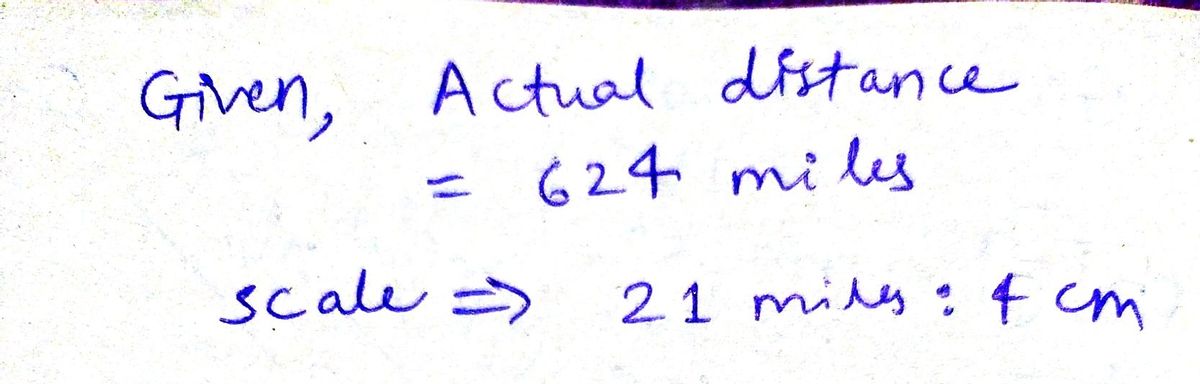 Given, Actual distance
= 624 miles
scale => 21 miles : 4 cm